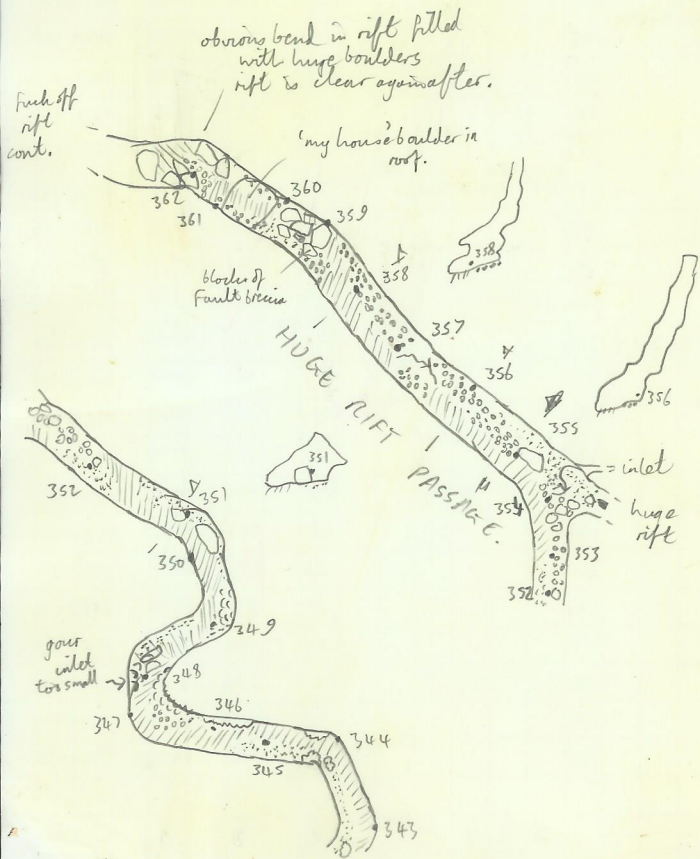 obvious bend in rift filled
with huge boulders
rift is clear again after.
Fuck off
rift
cont.
'my house' boulder in
roof.
362
361
360
359
358
358
blocks of
Fault breccia
357
356
356
355
HUGE RIFT PASSAGE.
= inlet
huge
rift
354
353
352
351
352
351
350
349
gour
inlet
too small
348
347
346
345
344
343